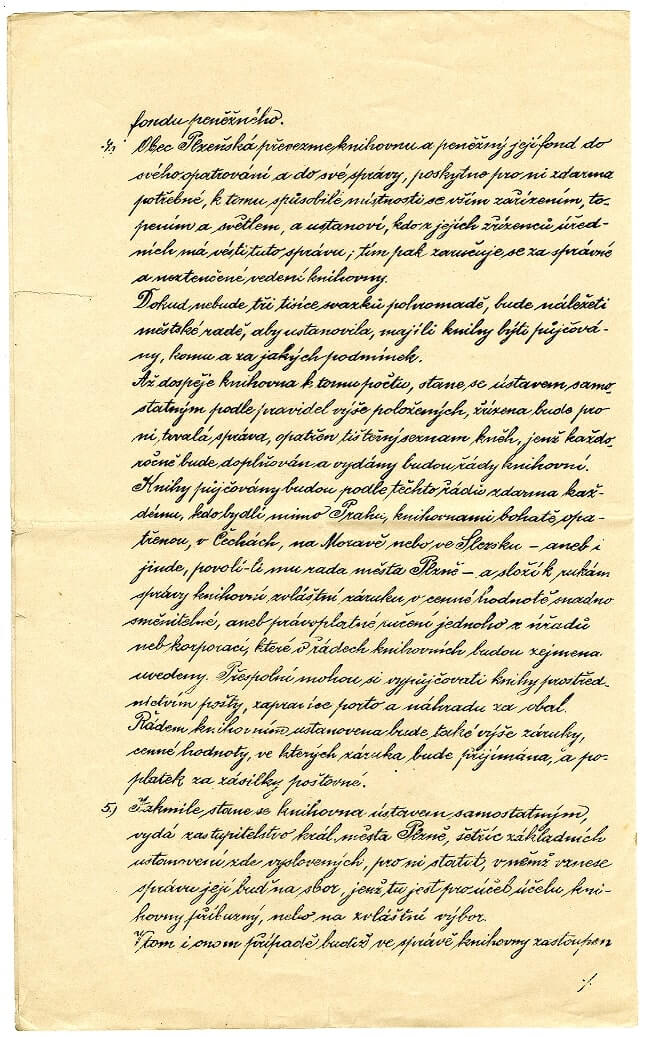 fondu peněžného.
4.) Obec Plzeňská převezme knihovnu a peněžný její fond do
svého opatrování a do své správy, poskytne pro ni zdarma
potřebné, k tomu spůsobilé místnosti se vším zařízením, to-
pením a světlem, a ustanoví, kdo z jejích zřízenců úřed-
ních má vésti tuto správu; tím pak zaručuje se za správné
a neztenčené vedení knihovny.
Dokud nebude tři tisíce svazků pohromadě, bude náležeti
městské radě, aby ustanovila, majíli knihy býti půjčová-
ny, komu a za jakých podmínek.
Až dospěje knihovna k tomu počtu, stane se ústavem samo-
statným podle pravidel výše položených, zřízena bude pro
ni trvalá správa, opatřen tištěný seznam kněh, jenž každo-
ročně bude doplňován a vydány budou řády knihovní.
Knihy půjčovány budou podle těchto řádů zdarma kaž-
dému, kdo bydlí mimo Prahu, knihovnami bohatě opa-
třenou, v Čechách, na Moravě nebo ve Slezsku – aneb i
jinde, povolí-li mu rada města Plzně – a složí k rukám
správy knihovní zvláštní záruku v cenné hodnotě snadno
směnitelné, aneb právoplatné ručení jednoho z úřadů
neb korporací, které v řádech knihovních budou zejmena
uvedeny. Přespolní mohou si vypůjčovati knihy prostřed-
nictvím pošty, zapravíce porto a náhradu za obal.
Řádem knihovním ustanovena bude také výše záruky,
cenné hodnoty, ve kterých záruka bude přijímána, a po-
platek za zásilky poštovné.
5.) Jakmile stane se knihovna ústavem samostatným,
vydá zastupitelstvo král. města Plzně, šetříc základních
ustanovení zde vyslovených, pro ni statut, v němž vznese
správu její buď na sbor, jenž tu jest pro účel účelu kni-
hovny příbuzný, nebo na zvláštní výbor.
V tom i onom případě budiž ve správě knihovny zastoupen
./.